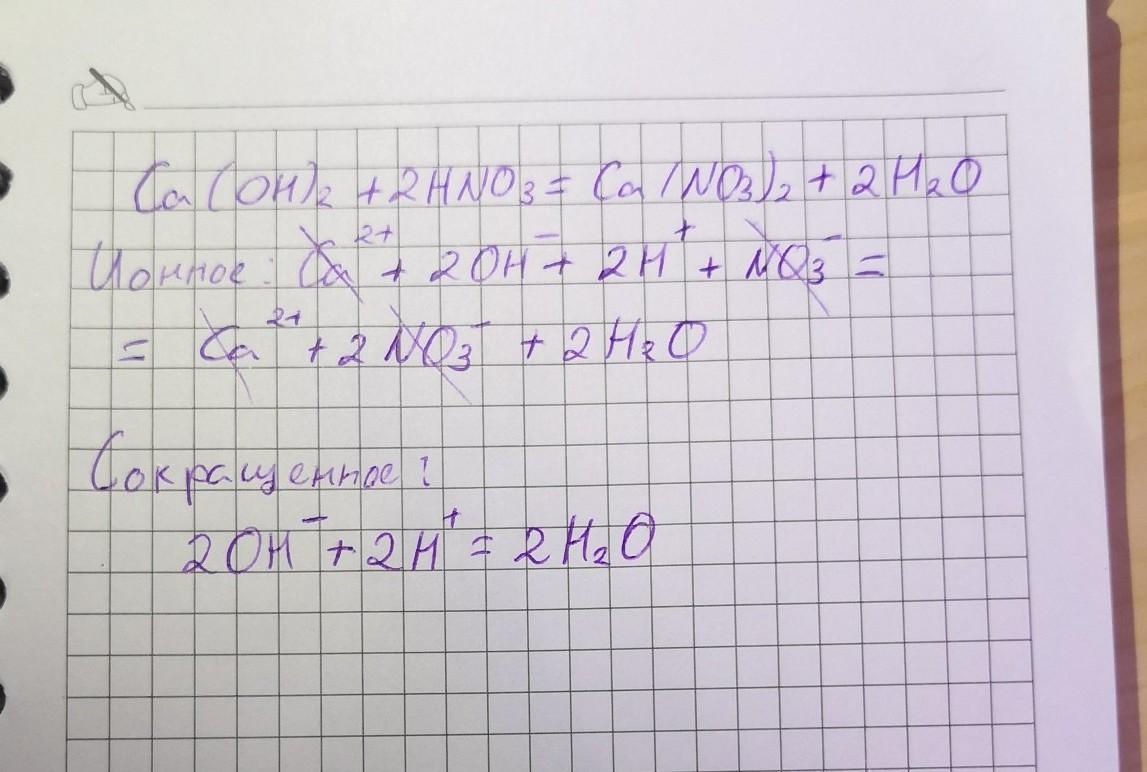 Ca(OH)₂ + 2HNO₃ = Ca(NO₃)₂ + 2H₂O
Ионное: Ca²⁺ + 2OH⁻ + 2H⁺ + NO₃⁻ =
= Ca²⁺ + 2NO₃⁻ + 2H₂O
Сокращенное:
2OH⁻ + 2H⁺ = 2H₂O